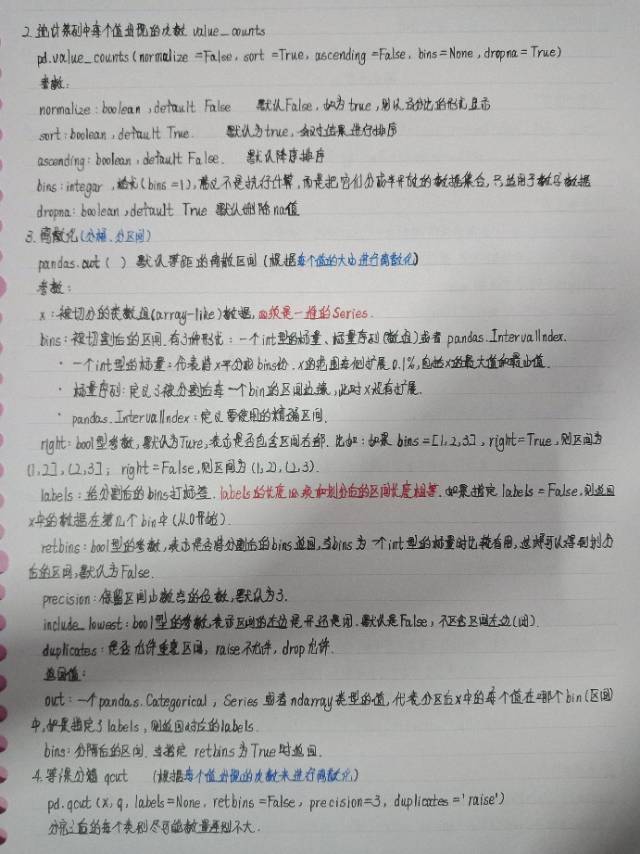 2. 统计系列中每个值出现的次数 value_counts
pd.value_counts(normalize =False, sort =True, ascending =False, bins=None, dropna=True)
参数:
normalize : boolean ,default False 默认False, 如为true, 则以百分比的形式显示
sort : boolean , default True. 默认为true, 会对结果进行排序
ascending : boolean, default False. 默认降序排序
bins : integar , 格式(bins =1), 意义不是执行计算, 而是把它们分成半开放的数据集合, 只适用于数字数据
dropna : boolean ,default True 默认删除na值
3. 离散化(分桶、分区间)
pandas.cut ( ) 默认等距的离散区间 (根据每个值的大小进行离散化)
参数:
x : 被切分的类数组(array-like)数据, 必须是一维的Series.
bins : 被切割后的区间. 有3种形式: 一个int型的标量、标量序列(数组)或者 pandas.IntervalIndex.
· 一个int型的标量: 代表将x平分成bins份. x的范围每侧扩展0.1%, 包括x的最大值和最小值.
· 标量序列: 定义了被分割后每一个bin的区间边缘, 此时x没有扩展.
· pandas.IntervalIndex : 定义要使用的精确区间.
right : bool型参数, 默认为Ture, 表示是否包含区间右部. 比如: 如果 bins=[1,2,3], right=True, 则区间为
(1,2], (2,3]; right =False, 则区间为 (1,2), (2,3).
labels : 给分割后的bins打标签. labels的长度必须和划分后的区间长度相等. 如果指定 labels = False. 则返回
x中的数据在第几个bin中 (从0开始).
retbins : bool型的参数, 表示是否将分割后的bins返回, 当bins为一个int型的标量时比较有用, 这样可以得到划分
后的区间, 默认为False.
precision : 保留区间小数点的位数, 默认为3.
include_lowest : bool型的参数, 表示区间的左边是开还是闭. 默认是False, 不包含区间左边(闭).
duplicates : 是否允许重复区间, raise不允许, drop允许.
返回值:
out : 一个pandas.Categorical , Series 或者ndarray类型的值, 代表分区后x中的每个值在哪个bin (区间)
中, 如果指定了labels, 则返回对应的labels.
bins : 分隔后的区间. 当指定 retbins为True时返回.
4. 等深分箱 qcut (根据每个值出现的次数来进行离散化)
pd.qcut (x, q, labels=None, retbins =False, precision=3, duplicates ='raise')
分完之后的每个类别尽可能数量差别不大.